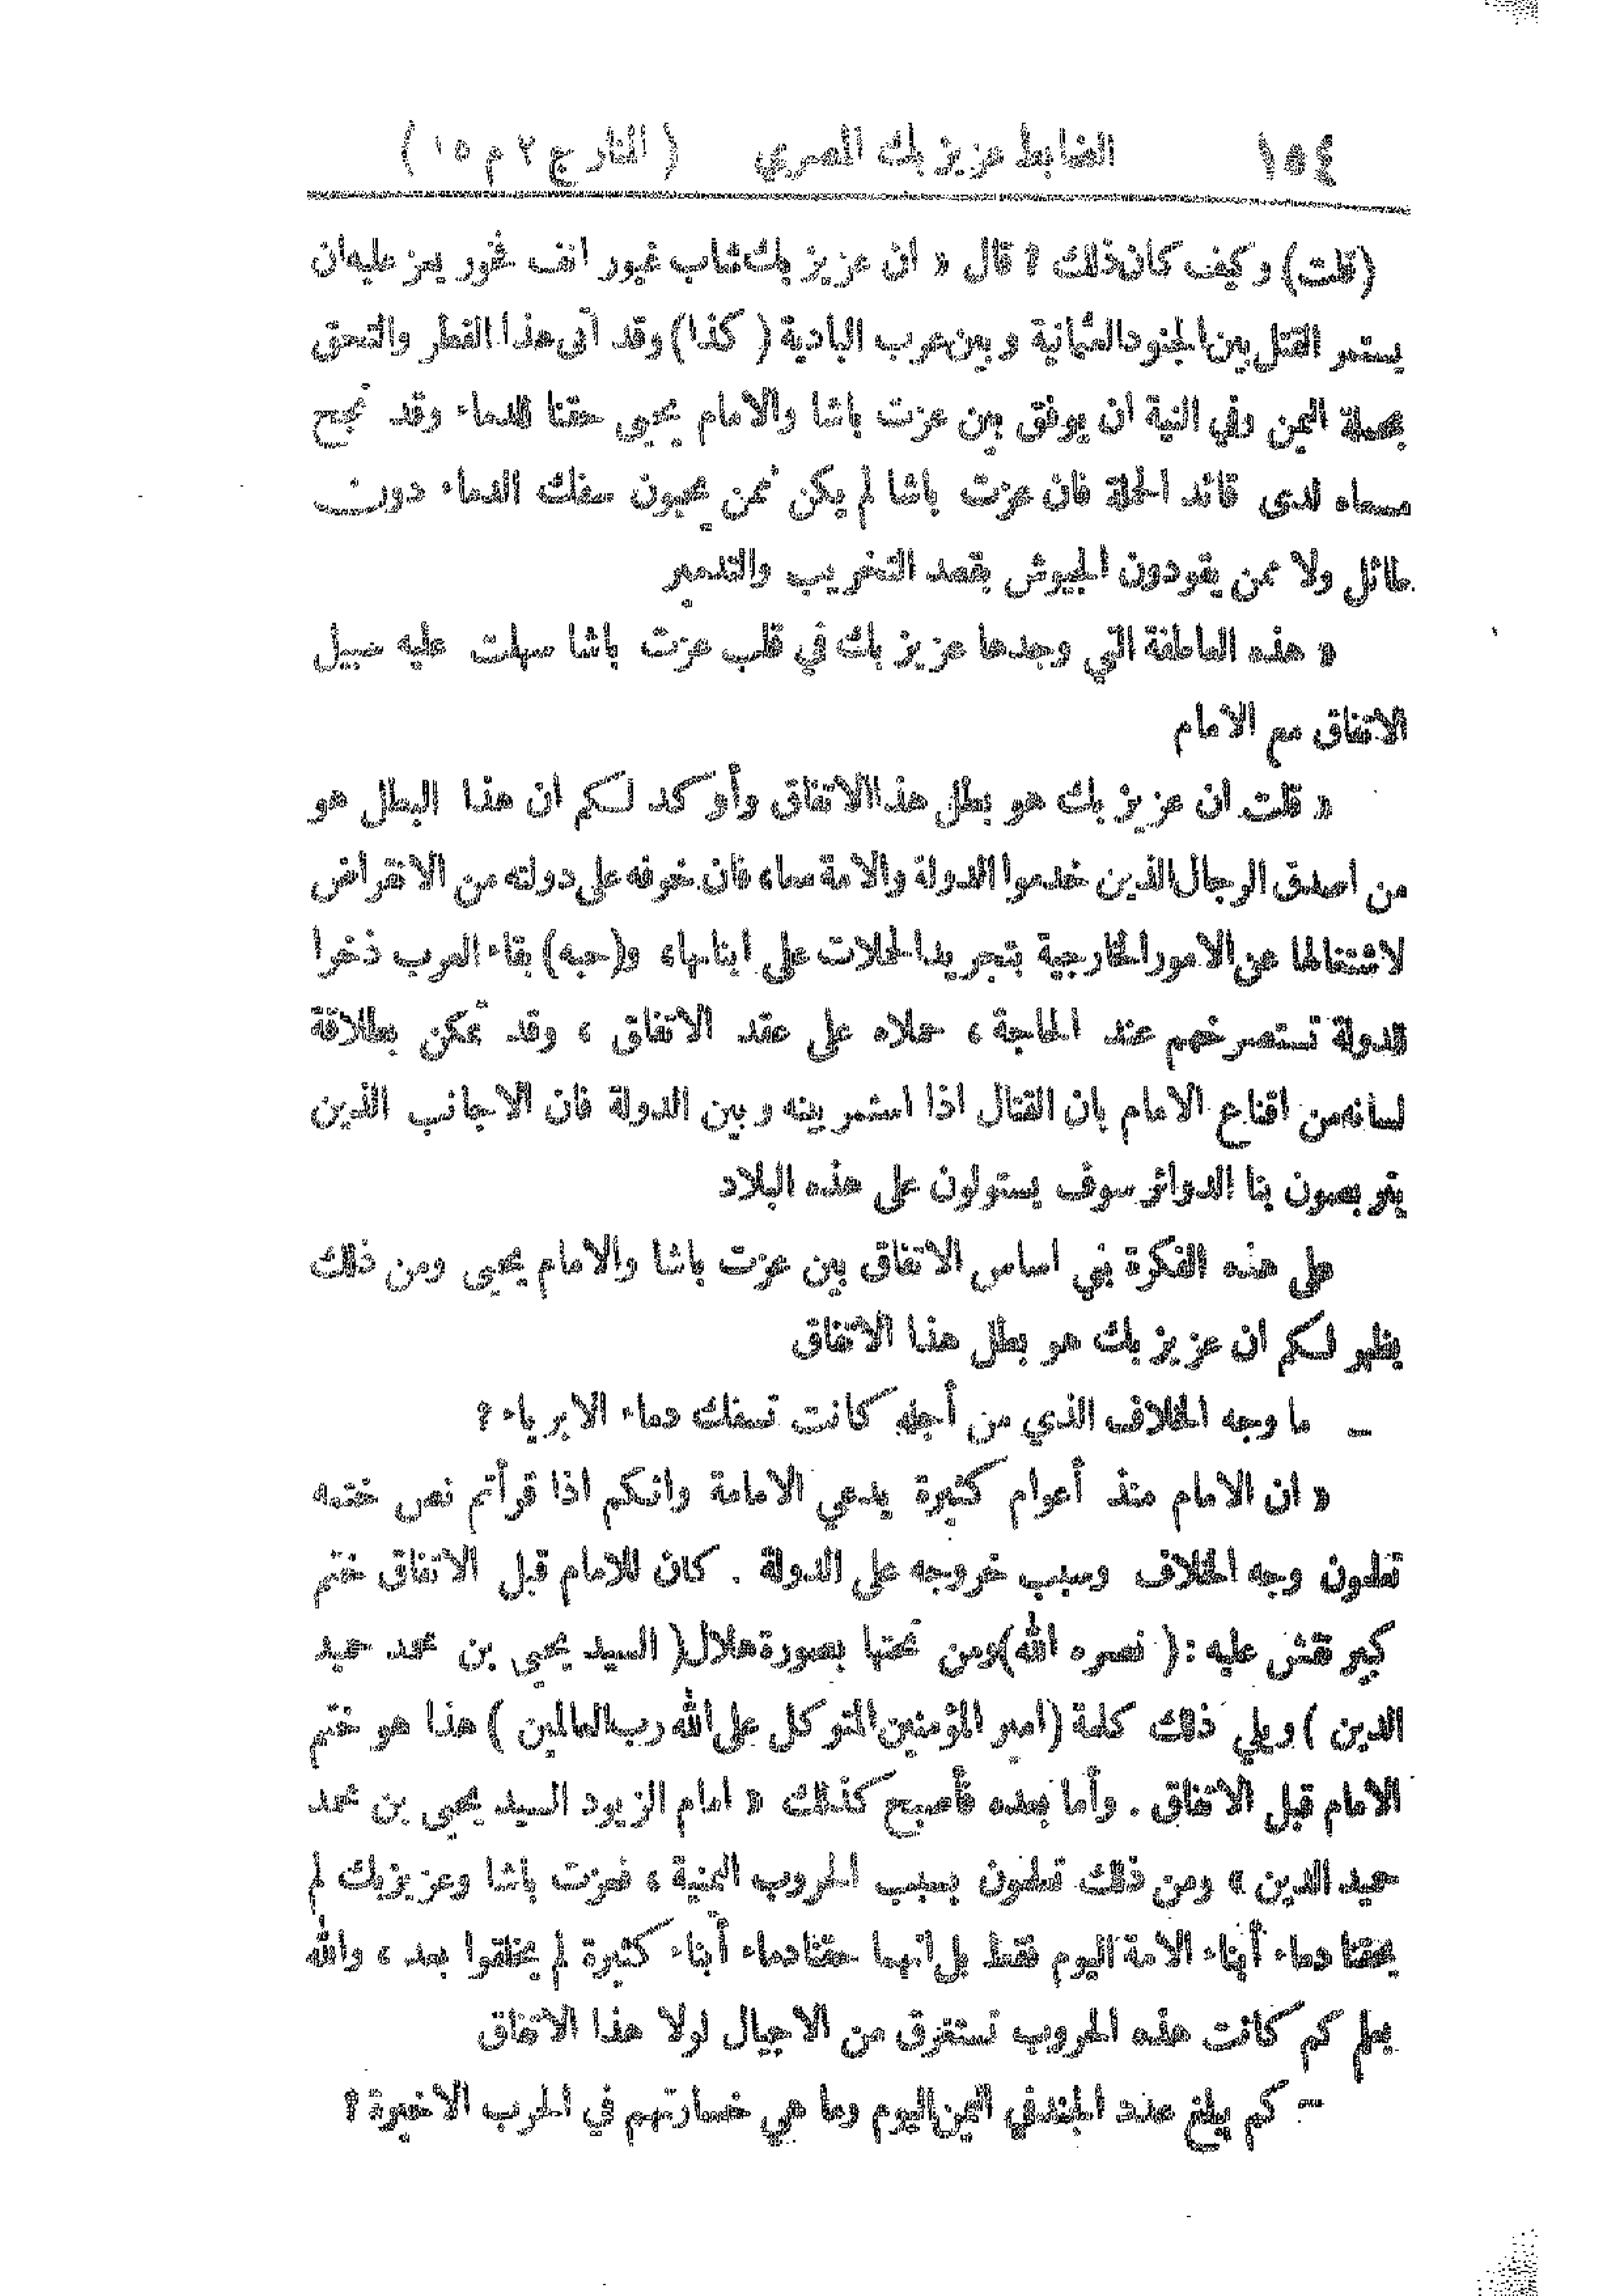 ١٥٤ الضابط عزيز بك المصري ( المنار ج ٢ م ١٥ )
(قلت) وكيف كان ذلك ؟ قال « ان عزيز بك شاب غيور انف فخور يعز عليه ان
يستمر القتل بين الجنود العثمانية وبين عرب البادية ( كذا ) وقد آتى هذا القطر والتحق
بحملة اليمن وفي النية ان يوفق بين عزت باشا والامام يحيى حقنا للدماء وقد نجح
مسعاه لدى قائد الحملة فان عزت باشا لم يكن ممن يحبون سفك الدماء دون
طائل ولا ممن يقودون الجيوش بقصد التخريب والتدمير
« هذه العاطفة التي وجدها عزيز بك في قلب عزت باشا سهلت عليه سبيل
الاتفاق مع الامام
« قلت ان عزيز بك هو بطل هذا الاتفاق وأوكد لكم ان هذا البطل هو
من اصدق الرجال الذين خدموا الدولة والامة معا، فان خوفه على دولته من الانقراض
لاشتغالها عن الامور الخارجية بتجريد الحملات على ابنائها، و(حبه) بقاء العرب ذخرا
للدولة تستصرخهم عند الحاجة ، حملاه على عقد الاتفاق ، وقد تمكن بطلاقة
لسانه من اقناع الامام بان القتال اذا استمر بينه وبين الدولة فان الاجانب الذين
يتربصون بنا الدوائر سوف يستولون على هذه البلاد
على هذه الفكرة بني اساس الاتفاق بين عزت باشا والامام يحيى ومن ذلك
يظهر لكم ان عزيز بك هو بطل هذا الاتفاق
ـ ما وجه الخلاف الذي من أجله كانت تسفك دماء الابرياء ؟
« ان الامام منذ أعوام كثيرة يدعي الامامة وانكم اذا قرأتم نص ختمه
تعلمون وجه الخلاف وسبب خروجه على الدولة . كان للامام قبل الاتفاق ختم
كبير نقش عليه : ( نصره الله ) ومن تحتها بصورة هلال ( السيد يحيى بن محمد حميد
الدين ) ويلي ذلك كلمة (امير المؤمنين المتوكل على الله رب العالمين ) هذا هو ختم
الامام قبل الاتفاق . وأما بعده فأصبح كذلك « امام الزيود السيد يحيى بن محمد
حميد الدين » ومن ذلك تعلمون بسبب الحروب اليمنية ، فعزت باشا وعزيز بك لم
يحقنا دماء أبناء الامة اليوم فقط بل انهما حقنا دماء أبناء كثيرة لم يخلقوا بعد ، والله
يعلم كم كانت هذه الحروب تستغرق من الاجيال لولا هذا الاتفاق
ـ كم يبلغ عدد الجند في اليمن اليوم وما هي خسارتهم في الحرب الاخيرة ؟